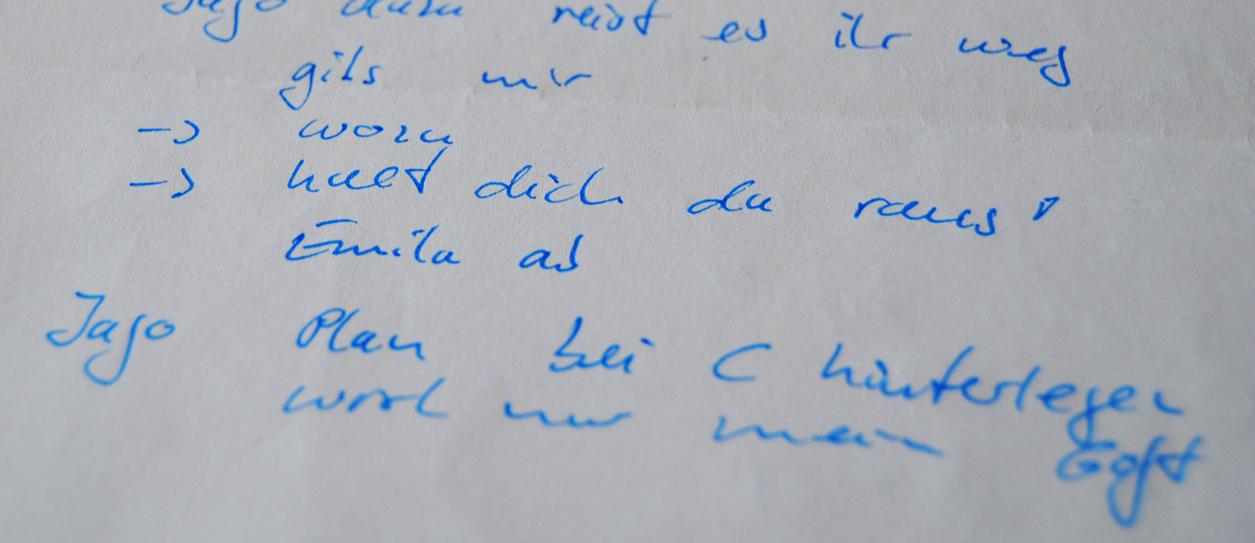 Jago dann reist es ihr weg
gibs mir
-> wozu
-> halt dich da raus!
Emila ab
Jago Plan bei C hinterlegen
wirkt nur mein Gift